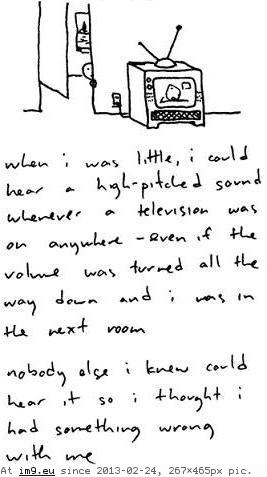 when i was little, i could
hear a high-pitched sound
whenever a television was
on anywhere - even if the
volume was turned all the
way down and i was in
the next room
nobody else i knew could
hear it so i thought i
had something wrong
with me
At im9.eu since 2013-02-24, 267×465px pic.